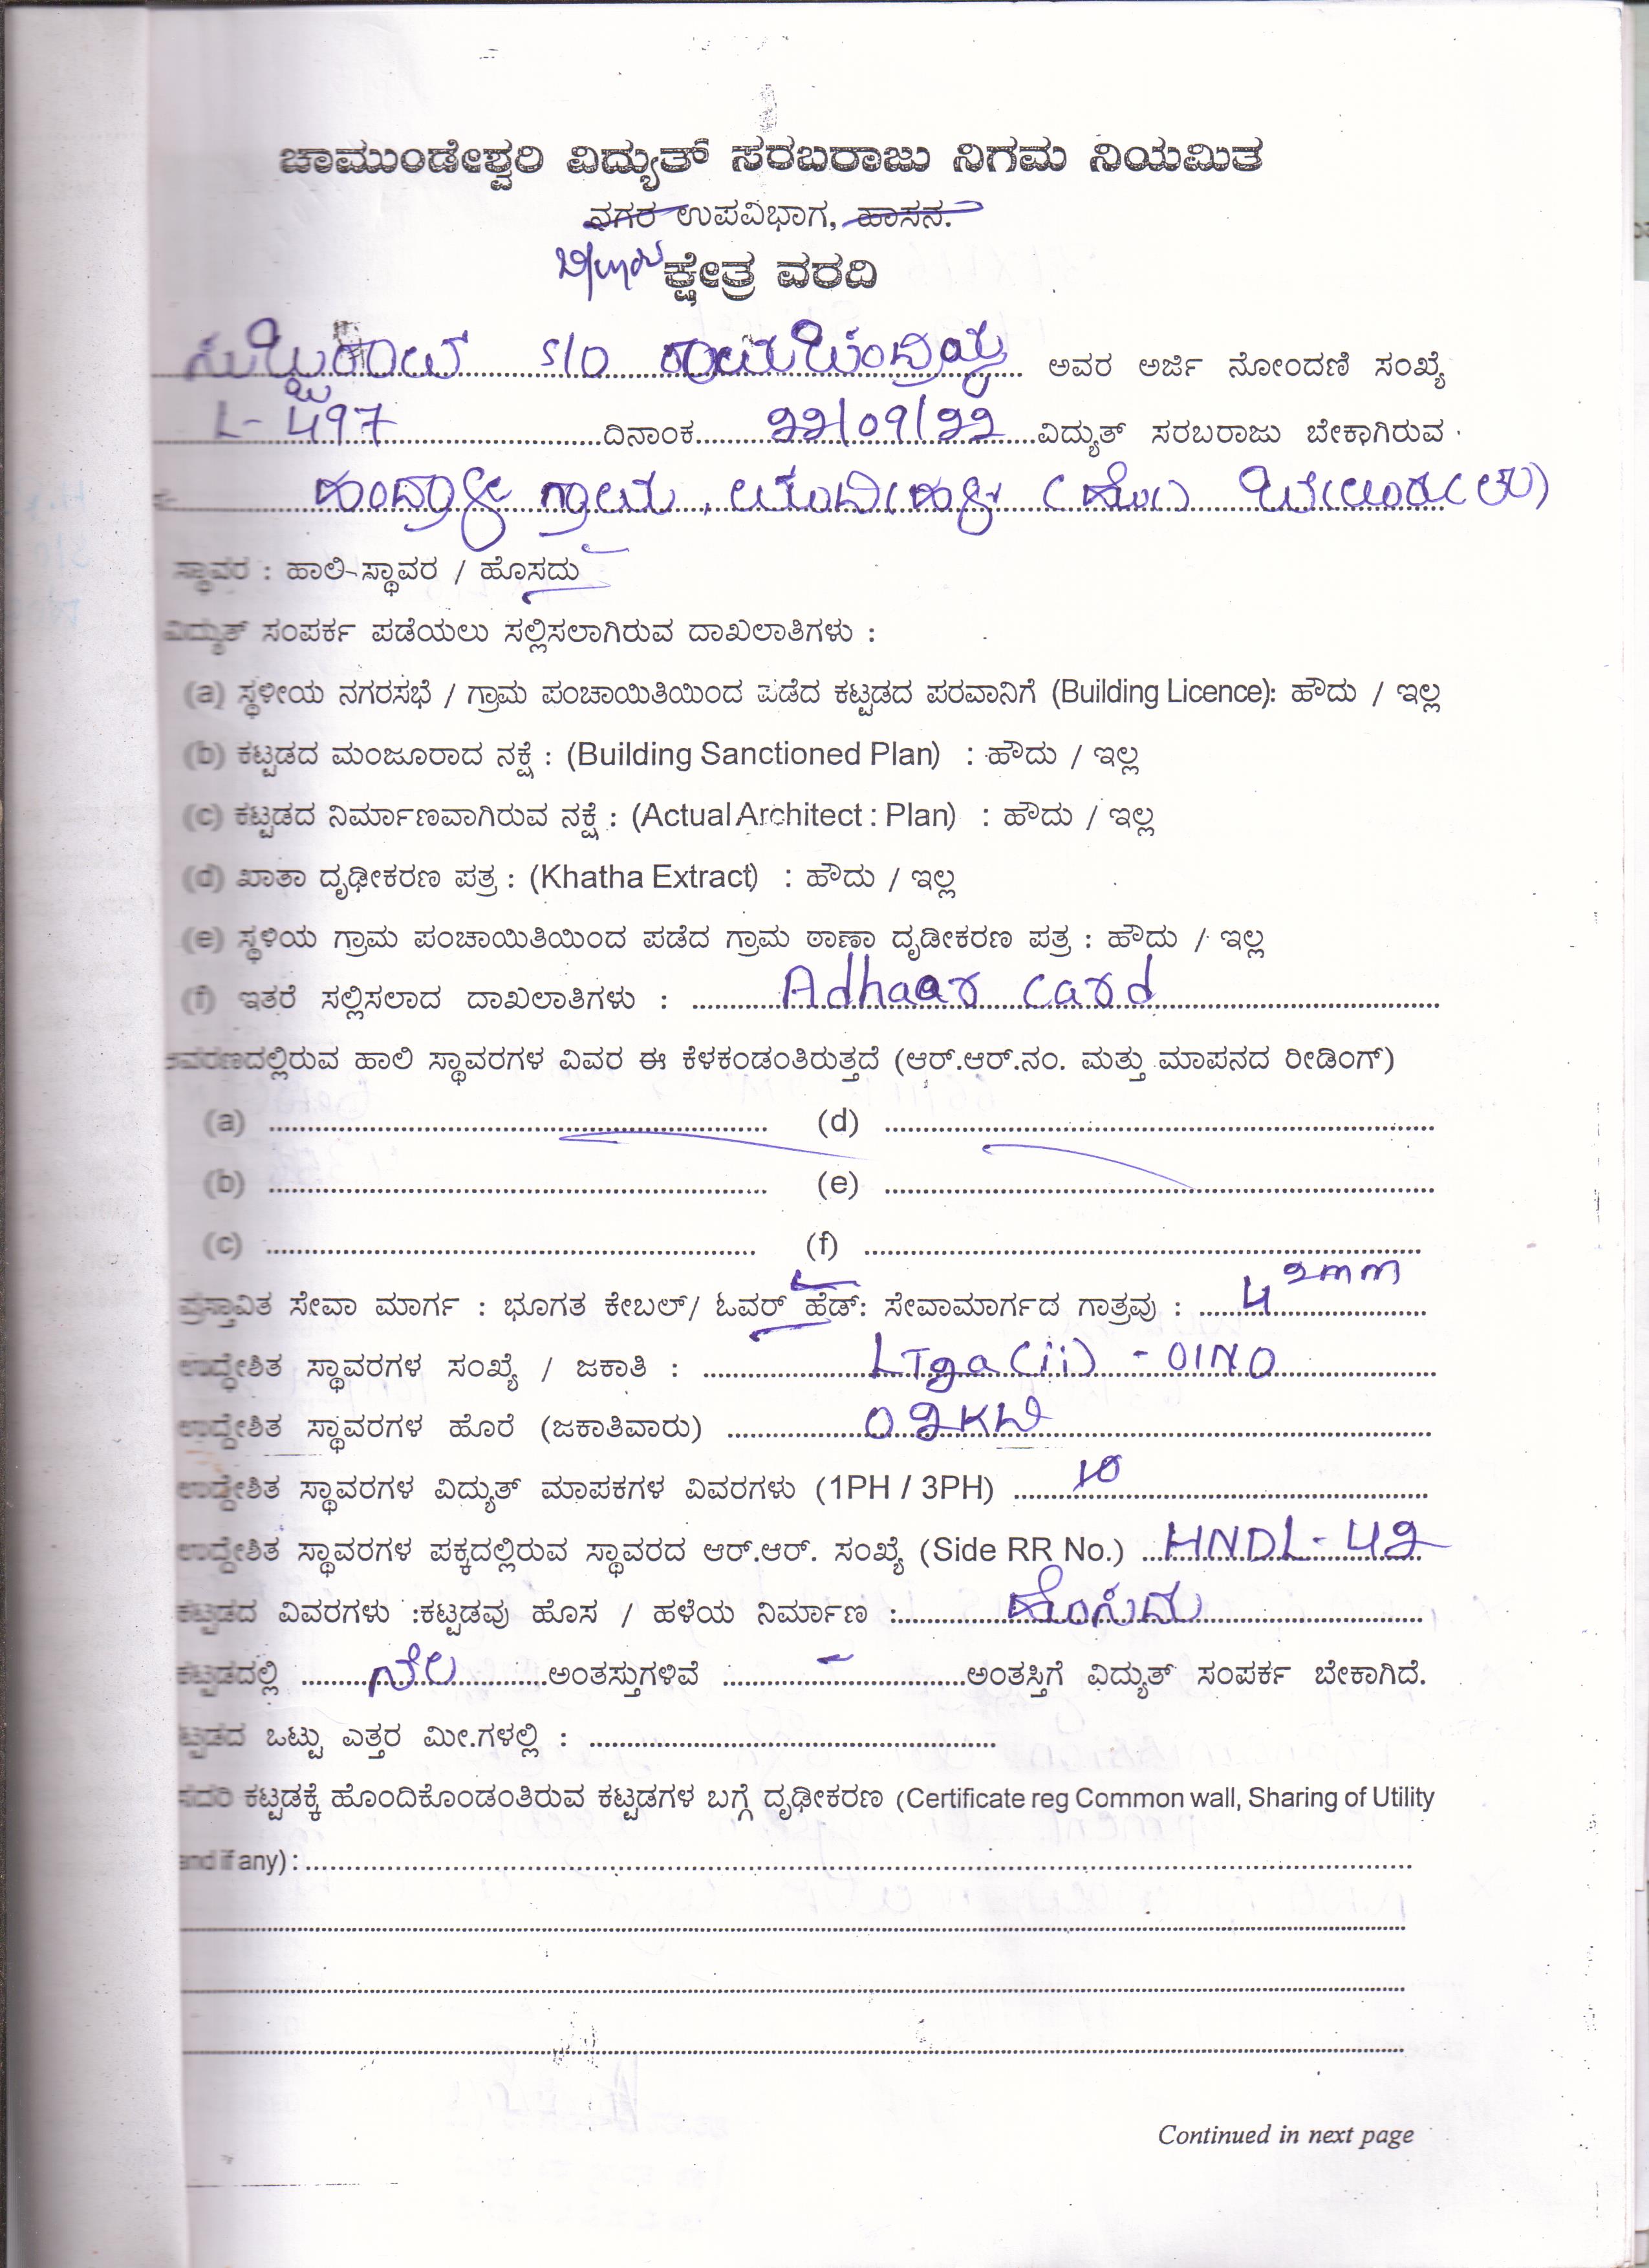 ಚಾಮುಂಡೇಶ್ವರಿ ವಿದ್ಯುತ್ ಸರಬರಾಜು ನಿಗಮ ನಿಯಮಿತ
ನಗರ ಉಪವಿಭಾಗ, ಹಾಸನ.
ಕ್ಷೇತ್ರ ವರದಿ
ಸುಬ್ಬರಾವ್ S/O ರಾಮಚಂದ್ರಯ್ಯ ಅವರ ಅರ್ಜಿ ನೋಂದಣಿ ಸಂಖ್ಯೆ
L-497 ದಿನಾಂಕ 22/09/22 ವಿದ್ಯುತ್ ಸರಬರಾಜು ಬೇಕಾಗಿರುವ
ಗ್ರಾಮ,
ಸ್ಥಾವರ : ಹಾಲಿ-ಸ್ಥಾವರ / ಹೊಸದು
ವಿದ್ಯುತ್ ಸಂಪರ್ಕ ಪಡೆಯಲು ಸಲ್ಲಿಸಲಾಗಿರುವ ದಾಖಲಾತಿಗಳು :
(a) ಸ್ಥಳೀಯ ನಗರಸಭೆ / ಗ್ರಾಮ ಪಂಚಾಯಿತಿಯಿಂದ ಪಡೆದ ಕಟ್ಟಡದ ಪರವಾನಿಗೆ (Building Licence): ಹೌದು / ಇಲ್ಲ
(b) ಕಟ್ಟಡದ ಮಂಜೂರಾದ ನಕ್ಷೆ : (Building Sanctioned Plan) : ಹೌದು / ಇಲ್ಲ
(c) ಕಟ್ಟಡದ ನಿರ್ಮಾಣವಾಗಿರುವ ನಕ್ಷೆ : (Actual Architect : Plan) : ಹೌದು / ಇಲ್ಲ
(d) ಖಾತಾ ದೃಢೀಕರಣ ಪತ್ರ : (Khatha Extract) : ಹೌದು / ಇಲ್ಲ
(e) ಸ್ಥಳಿಯ ಗ್ರಾಮ ಪಂಚಾಯಿತಿಯಿಂದ ಪಡೆದ ಗ್ರಾಮ ಠಾಣಾ ದೃಡೀಕರಣ ಪತ್ರ : ಹೌದು / ಇಲ್ಲ
(f) ಇತರೆ ಸಲ್ಲಿಸಲಾದ ದಾಖಲಾತಿಗಳು : Adhaar card
ಆವರಣದಲ್ಲಿರುವ ಹಾಲಿ ಸ್ಥಾವರಗಳ ವಿವರ ಈ ಕೆಳಕಂಡಂತಿರುತ್ತದೆ (ಆರ್.ಆರ್.ನಂ. ಮತ್ತು ಮಾಪನದ ರೀಡಿಂಗ್)
(a) (d)
(b) (e)
(c) (f)
ಪ್ರಸ್ತಾವಿತ ಸೇವಾ ಮಾರ್ಗ : ಭೂಗತ ಕೇಬಲ್/ ಓವರ್ ಹೆಡ್: ಸೇವಾಮಾರ್ಗದ ಗಾತ್ರವು : 4 2mm
ಉದ್ದೇಶಿತ ಸ್ಥಾವರಗಳ ಸಂಖ್ಯೆ / ಜಕಾತಿ : LT2a(ii) - 01NO
ಉದ್ದೇಶಿತ ಸ್ಥಾವರಗಳ ಹೊರೆ (ಜಕಾತಿವಾರು) 02KW
ಉದ್ದೇಶಿತ ಸ್ಥಾವರಗಳ ವಿದ್ಯುತ್ ಮಾಪಕಗಳ ವಿವರಗಳು (1PH / 3PH) 1Ø
ಉದ್ದೇಶಿತ ಸ್ಥಾವರಗಳ ಪಕ್ಕದಲ್ಲಿರುವ ಸ್ಥಾವರದ ಆರ್.ಆರ್. ಸಂಖ್ಯೆ (Side RR No.) HNDL-42
ಕಟ್ಟಡದ ವಿವರಗಳು :ಕಟ್ಟಡವು ಹೊಸ / ಹಳೆಯ ನಿರ್ಮಾಣ : ಹೊಸದು
ಕಟ್ಟಡದಲ್ಲಿ ನೆಲ ಅಂತಸ್ತುಗಳಿವೆ - ಅಂತಸ್ತಿಗೆ ವಿದ್ಯುತ್ ಸಂಪರ್ಕ ಬೇಕಾಗಿದೆ.
ಕಟ್ಟಡದ ಒಟ್ಟು ಎತ್ತರ ಮೀ.ಗಳಲ್ಲಿ :
ಸದರಿ ಕಟ್ಟಡಕ್ಕೆ ಹೊಂದಿಕೊಂಡಂತಿರುವ ಕಟ್ಟಡಗಳ ಬಗ್ಗೆ ದೃಢೀಕರಣ (Certificate reg Common wall, Sharing of Utility
and if any) :
Continued in next page